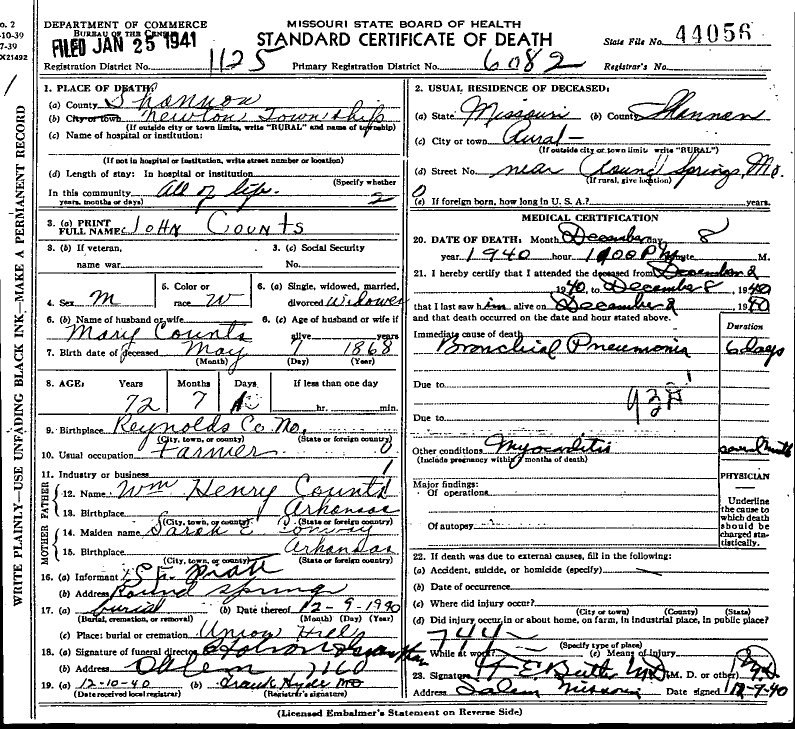 DEPARTMENT OF COMMERCE
BUREAU OF THE CENSUS
FILED JAN 25 1941
MISSOURI STATE BOARD OF HEALTH
STANDARD CERTIFICATE OF DEATH
State File No. 44056
Registration District No. 1125
Primary Registration District No. 6082
Registrar's No.
o. 2
-10-39
7-39
X21492
WRITE PLAINLY—USE UNFADING BLACK INK—MAKE A PERMANENT RECORD
1. PLACE OF DEATH:
(a) County Shannon
(b) City or town Newton Township
(If outside city or town limits, write "RURAL" and name of township)
(c) Name of hospital or institution:
(If not in hospital or institution, write street number or location)
(d) Length of stay: In hospital or institution
(Specify whether
In this community All of life. 2
years, months or days)
3. (a) PRINT
FULL NAME: JOHN COUNTS
3. (b) If veteran,
name war
3. (c) Social Security
No.
4. Sex M
5. Color or
race W
6. (a) Single, widowed, married,
divorced Widower
6. (b) Name of husband or wife
Mary Counts
6. (c) Age of husband or wife if
alive years
7. Birth date of deceased May 1 1868
(Month) (Day) (Year)
8. AGE: Years Months Days If less than one day
72 7 hr. min.
9. Birthplace Reynolds Co Mo.
(City, town, or county) (State or foreign country)
10. Usual occupation Farmer 0
11. Industry or business 1
FATHER
12. Name Wm Henry Counts
13. Birthplace Arkansas
(City, town, or county) (State or foreign country)
MOTHER
14. Maiden name Sarah E Conway
15. Birthplace Arkansas
(City, town, or county) (State or foreign country)
16. (a) Informant
(b) Address Round Spring
17. (a) burial (b) Date thereof 12-9-1940
(Burial, cremation, or removal) (Month) (Day) (Year)
(c) Place: burial or cremation Union Hill
18. (a) Signature of funeral director
(b) Address
19. (a) 12-10-40 (b) Frank Hyde MD
(Date received local registrar) (Registrar's signature)
2. USUAL RESIDENCE OF DECEASED:
(a) State Missouri (b) County Shannon
(c) City or town Rural
(If outside city or town limit write "RURAL")
(d) Street No. near Round Springs, Mo.
(If rural, give location)
0
(e) If foreign born, how long in U. S. A.? years.
MEDICAL CERTIFICATION
20. DATE OF DEATH: Month December day 8
year 1940 hour 1100 PM minute M.
21. I hereby certify that I attended the deceased from December 2
1940, to December 8, 1940
that I last saw him alive on December 2, 1940
and that death occurred on the date and hour stated above.
Duration
Immediate cause of death
Bronchial Pneumonia 6 days
Due to
Due to
Other conditions Myocarditis
(Include pregnancy within 3 months of death)
PHYSICIAN
Major findings:
Of operations
Of autopsy
Underline
the cause to
which death
should be
charged sta-
tistically.
22. If death was due to external causes, fill in the following:
(a) Accident, suicide, or homicide (specify)
(b) Date of occurrence
(c) Where did injury occur?
(City or town) (County) (State)
(d) Did injury occur in or about home, on farm, in industrial place, in public place?
744
(Specify type of place)
While at work? (e) Means of injury
23. Signature M. D. or other)
Address Salem Missouri Date signed 12-7-40
(Licensed Embalmer's Statement on Reverse Side)